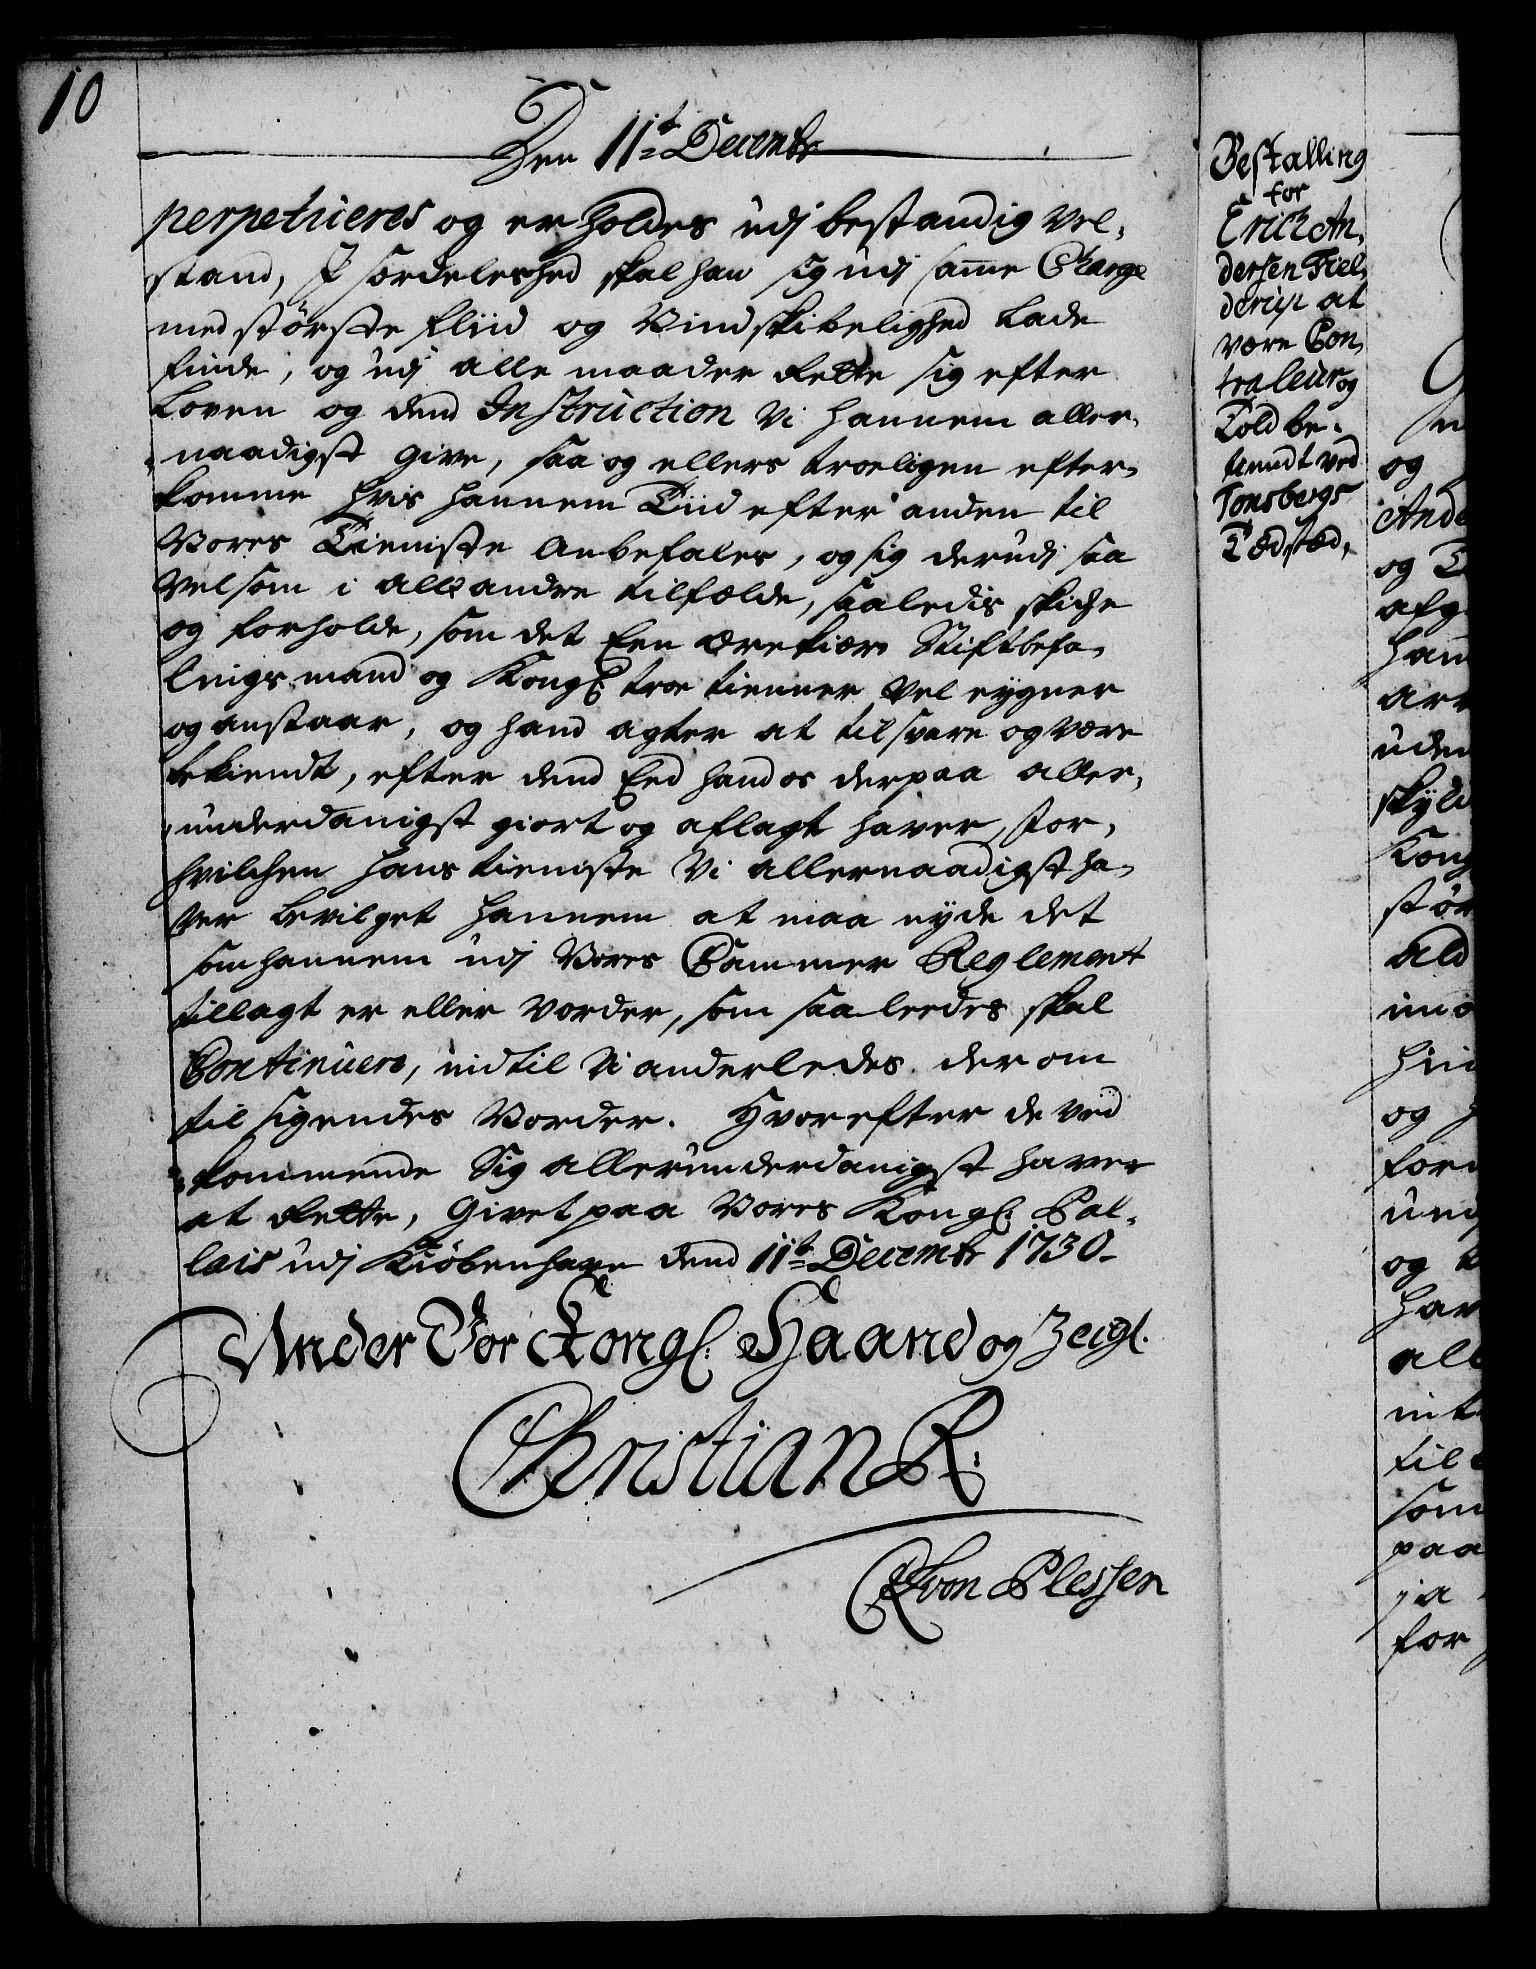 10
Den 11te Decembr
perpetueres og er holdes udj bestandig vel-
stand, J særdeleshed skal han sig udj samme Charge
med største fliid og Vindskibelighed lade
finde, og udj alle maader rette sig efter
Loven og dend Instruction Vi hannem aller-
naadigst give, saa og ellers troeligen efter-
komme hvis hannem Tiid efter anden til
Vores Tieniste Anbefales, og sig derudj saa
vel som i alle andre tilfælde, saaledis skiche
og forholde, som det Een ærekiær Stiftbefa-
lings mand og Kongl. troe tienner vel eygner
og anstaar, og hand agter at til svare og være
bekiendt, efter dend Eed hand os derpaa aller-
underdanigst giort og aflagt haver, for
hvilchen hans tieniste Vi allernaadigst ha-
ver bevilget hannem at maa nyde det
som hannem udj Vores Cammer Reglement
tillagt er eller vorder, som saaleedes skal
Continuere, indtil Vi anderledes der om
til sigendes vorder. Hvorefter de ved
kommende Sig allerunderdanigst haver
at rette, Givet paa Vores Kongl. Pal-
lais udj Kiøbenhavn dend 11te Decembr 1730
Under Vor Kongl. Haand og Zeigl.
Christian R.
von Plessen
Bestalling
for
Erich An-
dersen Fiel-
derup at
være Con-
traleur og
Told be-
tiendt ved
Tonsbergs
Toldsted,
og
Ande
og T
afg
han
uden
skyld
Kong
stør
ald
og
for
og
hav
all
til
som
paa
ja
for